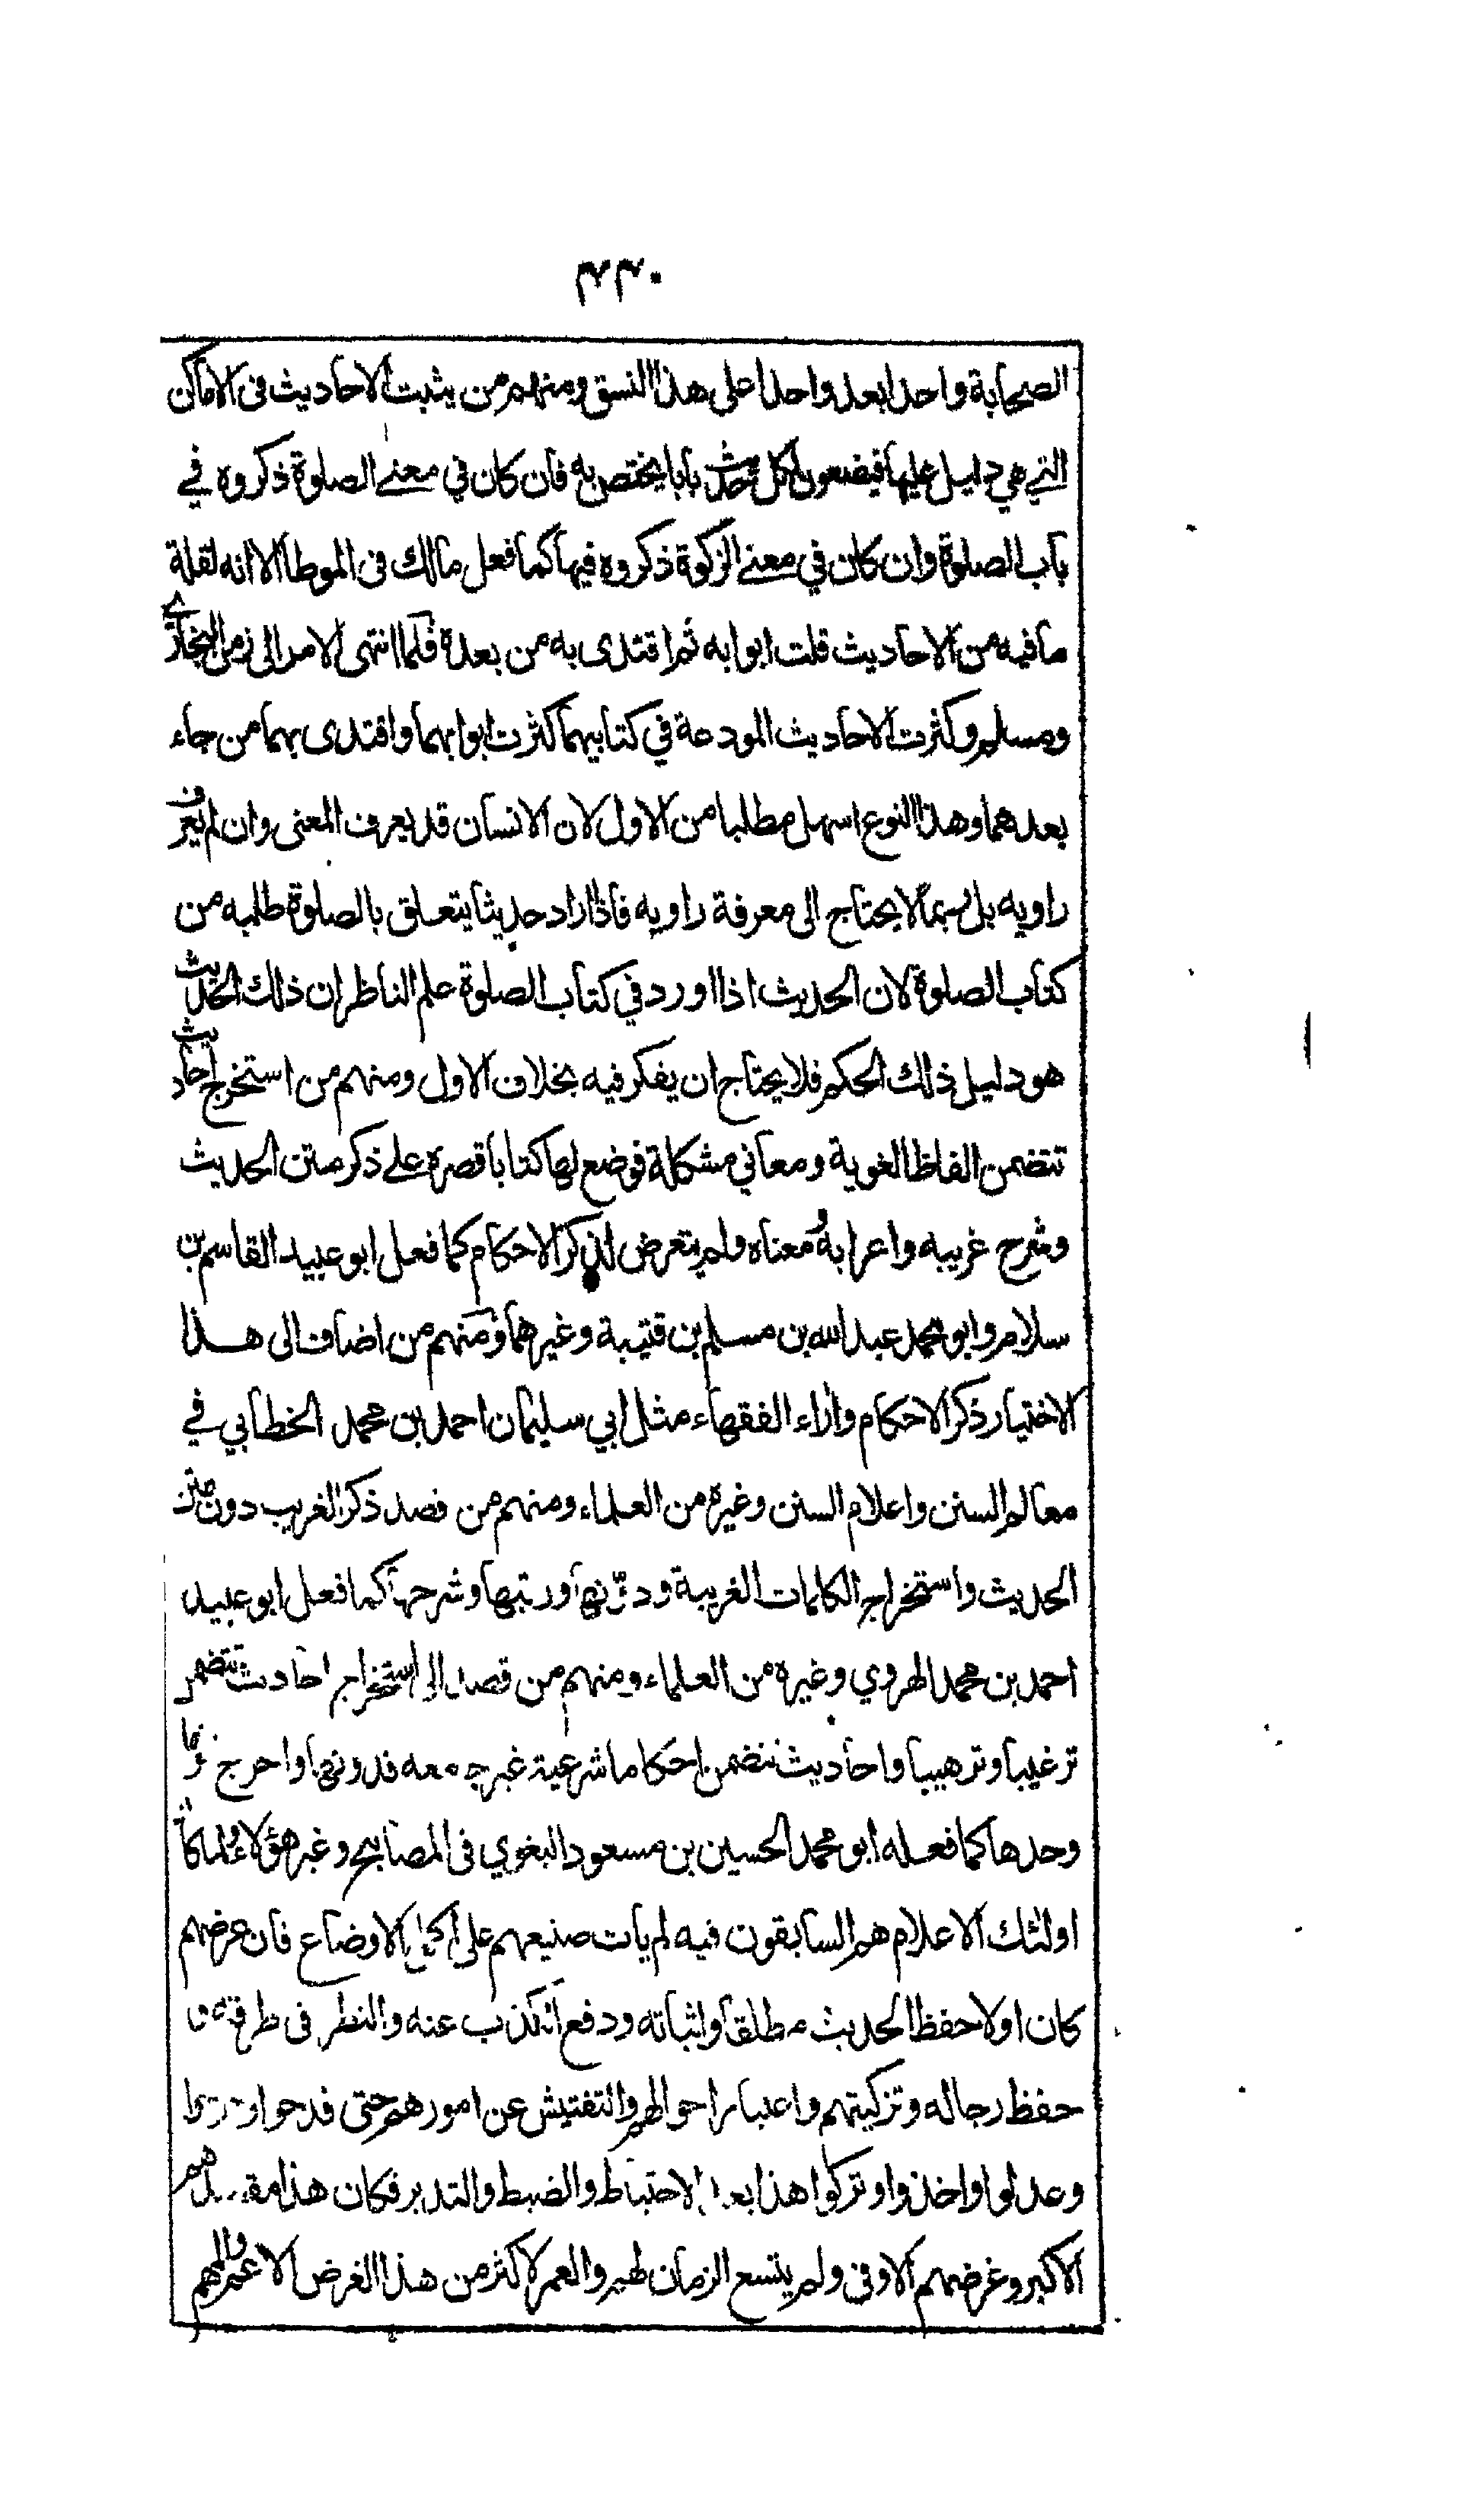 ٤٣٠
الصحابة واحدا بعد واحدا على هذا النسق ومنهم من يثبت الاحاديث فى الاماكن
التي هي دليل عليها فيضعون لكل حديث بابا يختص به فان كان في معنے الصلوة ذكروه في
باب الصلوة وان كان في معنے الزكوة ذكروه فيها كما فعل مالك فى الموطا الا انه لقلة
ما فيه من الاحاديث قلت ابوابه ثم اقتدى به من بعده فلما انتهى الامر الى زمن البخارے
ومسلم وكثرت الاحاديث المودعة في كتابيهما كثرت ابوابهما واقتدى بهما من جاء
بعدهما وهذا النوع اسهل مطلبا من الاول لان الانسان قد يعرف المعنى وان لم يعرف
راويه بل ربما لا يحتاج الى معرفة راويه فاذا اراد حديثا يتعلق بالصلوة طلبه من
كتاب الصلوة لان الحديث اذا اورد في كتاب الصلوة علم الناظر ان ذلك الحديث
هو دليل ذلك الحكم فلا يحتاج ان يفكر فيه بخلاف الاول ومنهم من استخرج احاديث
تتضمن الفاظا لغوية ومعاني مشكلة فوضع لها كتابا قصره علے ذكر متن الحديث
وشرح غريبه واعرابه ومعناه ولم يتعرض لذكر الاحكام كما فعل ابو عبيد القاسم بن
سلام وابو محمد عبد الله بن مسلم بن قتيبة وغيرهما ومنهم من اضاف الى هذا
الاختيار ذكر الاحكام واراء الفقهاء مثل ابي سليمان احمد بن محمد الخطابي في
معالم السنن واعلام السنن وغيره من العلماء ومنهم من قصد ذكر الغريب دون متن
الحديث واستخراج الكلمات الغريبة ودونها ورتبها وشرحها كما فعل ابو عبيد
احمد بن محمد الهروي وغيره من العلماء ومنهم من قصد الى استخراج احاديث تتضمن
ترغيبا وترهيبا واحاديث تتضمن احكاما شرعية غير جامعه فدونها واخرج
وحدها كما فعله ابو محمد الحسين بن مسعود البغوي فى المصابيح وغير هؤلاء ولما كان
اولئك الاعلام هم السابقون فيه لم يات صنيعهم على اكمل الاوضاع فان غرضهم
كان اولا حفظ الحديث مطلقا واثباته ودفع الكذب عنه والنظر فى طرقه و
حفظ رجاله وتزكيتهم واعتبار احوالهم والتفتيش عن امورهم حتى قدحوا
وعدلوا واخذوا وتركوا هذا بعد الاحتياط والضبط والتدبر فكان هذا مقصدهم
الاكبر وغرضهم الاوفى ولم يتسع الزمان لهم والعمر لاكثر من هذا الغرض الاعم